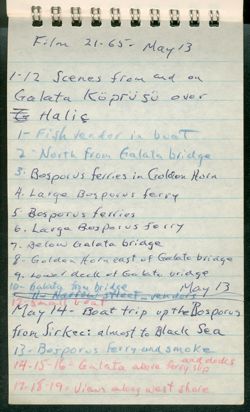 Film 21-65 - May 13
1-12 Scenes from and on
Galata Köprüsü over
Haliç
1- Fish vendor in boat
2- North from Galata bridge
3. Bosporus ferries in Golden Horn
4. Large Bosporus ferry
5 Bosporus ferries
6. Large Bosporus ferry
7. Below Galata bridge
8- Golden Horn east of Galata bridge
9. Lower deck of Galata bridge
10- Galata from bridge
11- Narrow street - vendors May 13
12- boat
May 14- Boat trip up the Bosporus
from Sirkeci almost to Black Sea
13- Bosporus ferry and smoke
14-15-16- Galata above ferry slip and docks
17-18-19- Views along west shore